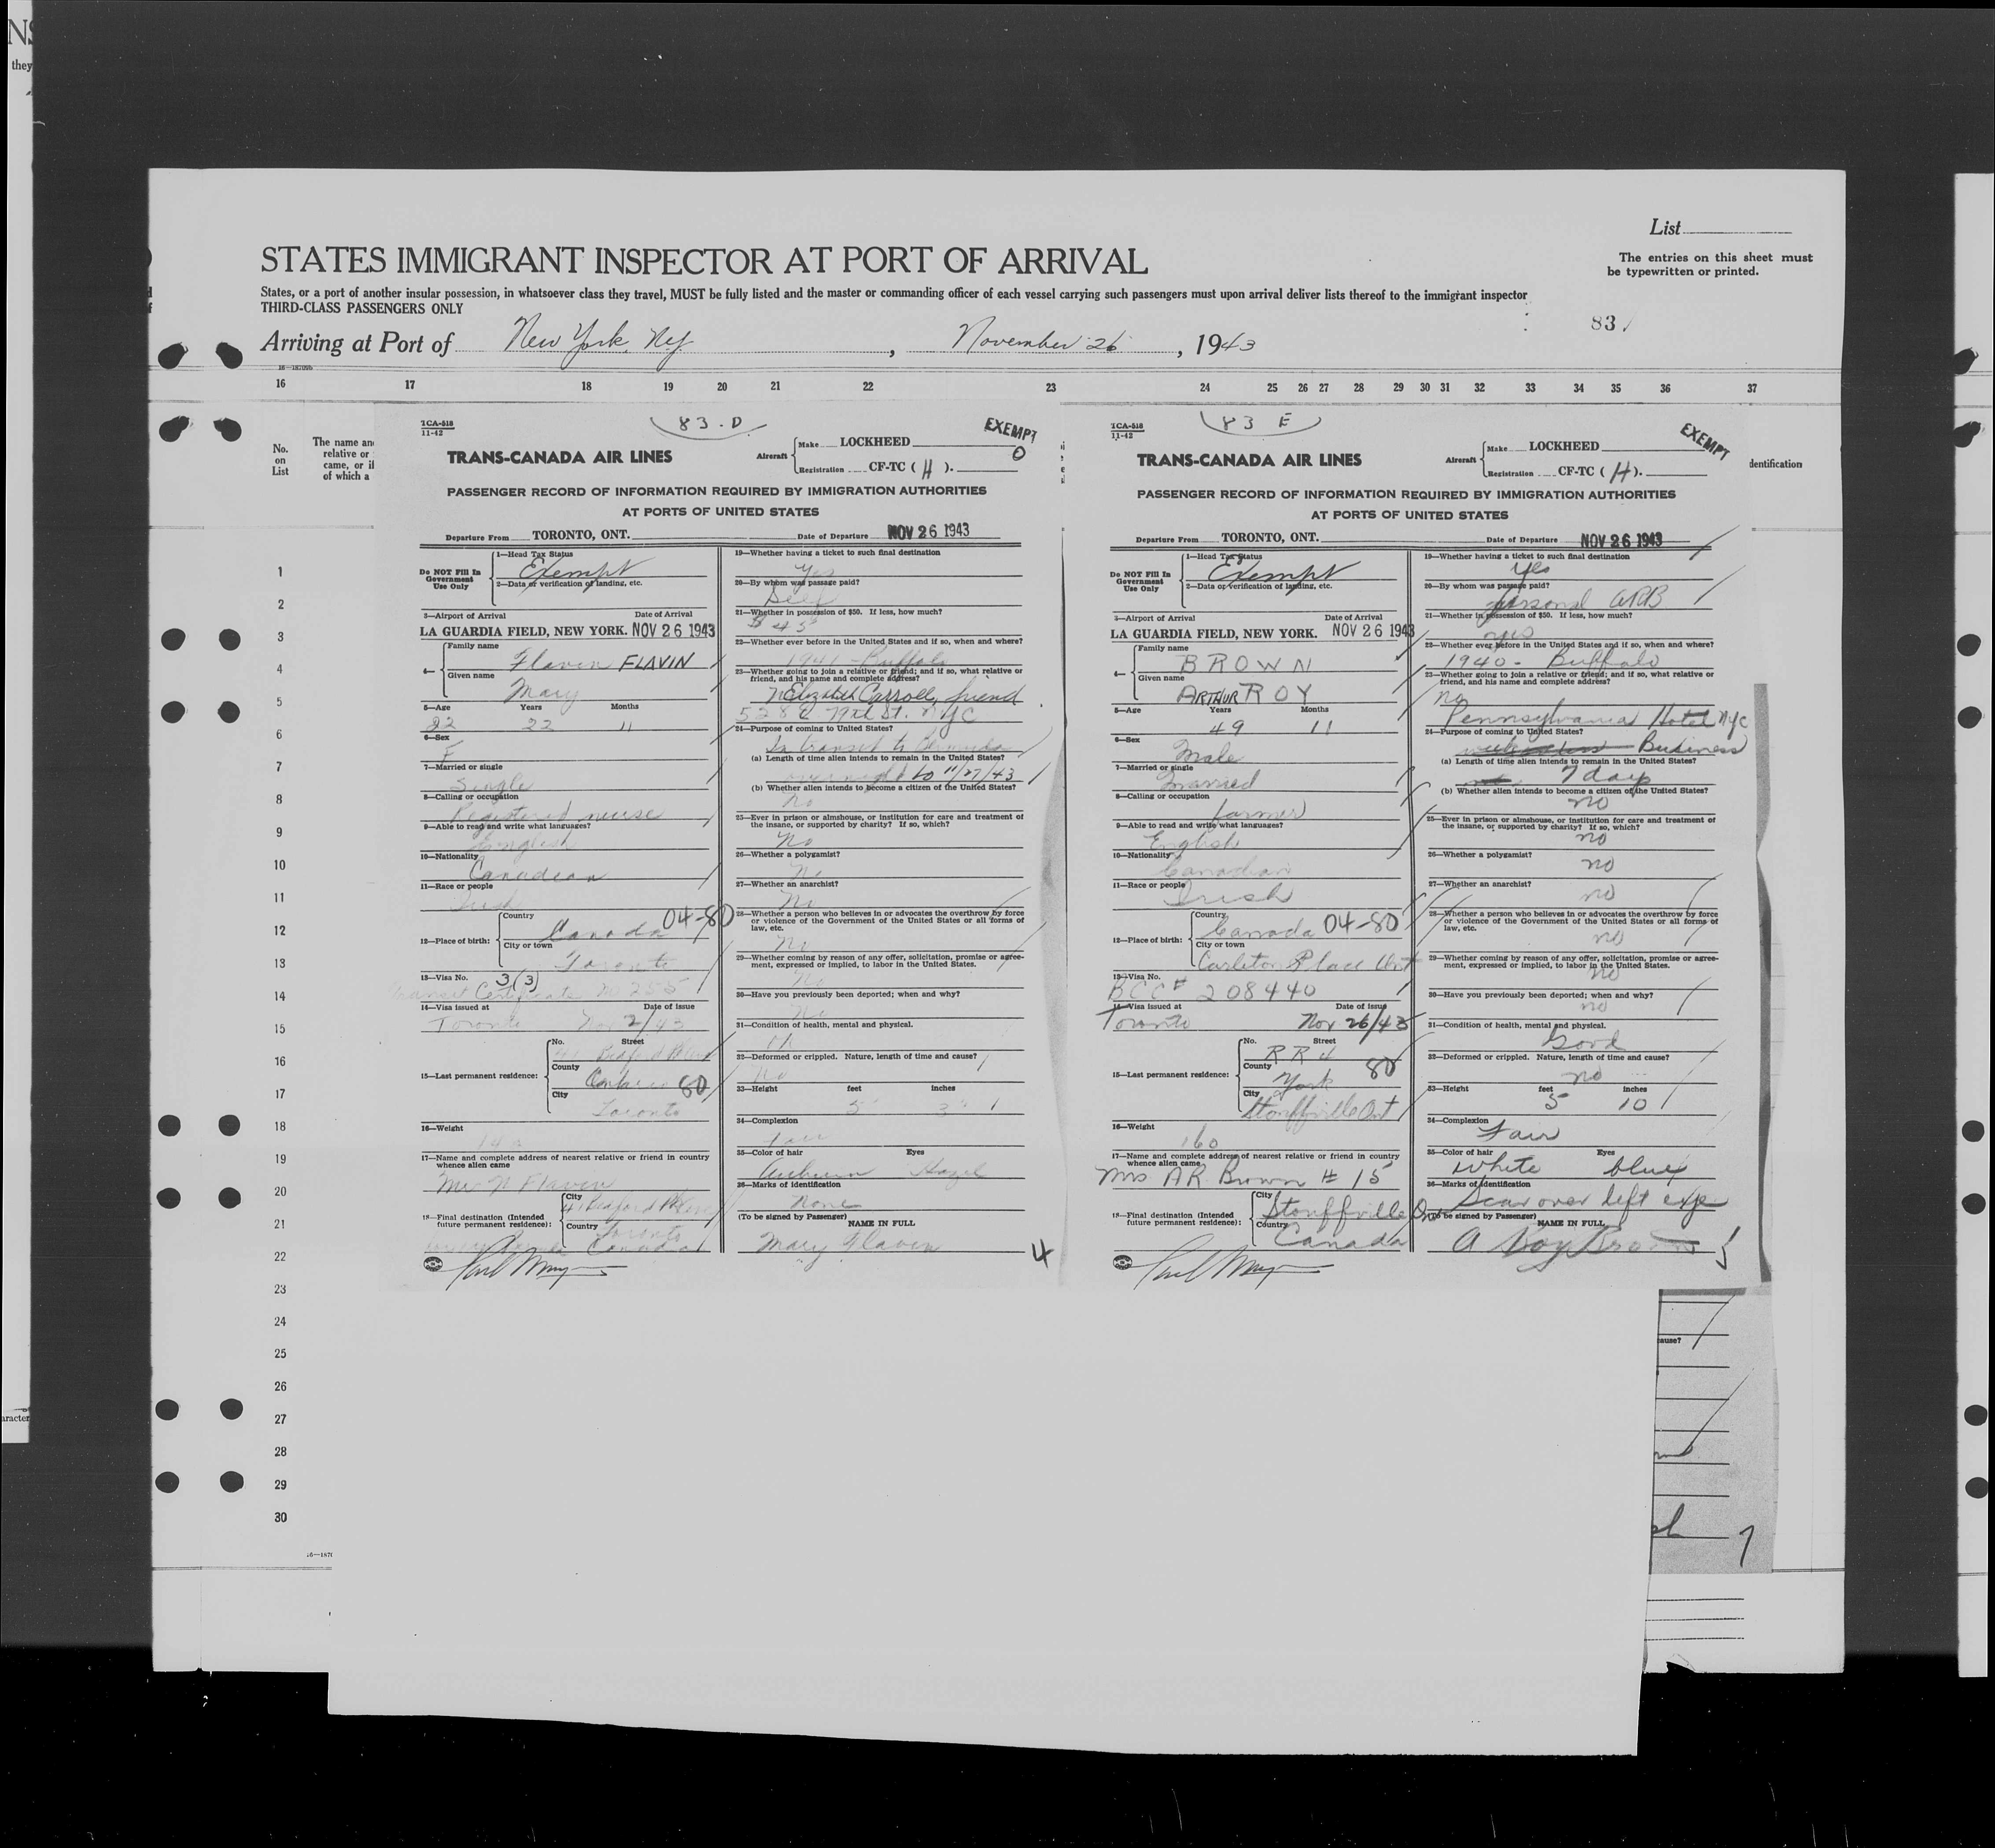 NS
they
List
STATES IMMIGRANT INSPECTOR AT PORT OF ARRIVAL
The entries on this sheet must
be typewritten or printed.
States, or a port of another insular possession, in whatsoever class they travel, MUST be fully listed and the master or commanding officer of each vessel carrying such passengers must upon arrival deliver lists thereof to the immigrant inspector
THIRD-CLASS PASSENGERS ONLY
83
Arriving at Port of New York, NY, November 26, 1943
16 17 18 19 20 21 22 23 24 25 26 27 28 29 30 31 32 33 34 35 36 37
No.
on
List
The name and
relative or
came, or if
of which a
dentification
1
2
3
4
5
6
7
8
9
10
11
12
13
14
15
16
17
18
19
20
21
22
23
24
25
26
27
28
29
30
TCA-518
11-42
83-D
EXEMPT
0
TRANS-CANADA AIR LINES
Aircraft
Make LOCKHEED
Registration CF-TC (H).
PASSENGER RECORD OF INFORMATION REQUIRED BY IMMIGRATION AUTHORITIES
AT PORTS OF UNITED STATES
Departure From TORONTO, ONT. Date of Departure NOV 26 1943
Do NOT Fill In
Government
Use Only
1—Head Tax Status
Exempt
2—Data or verification of landing, etc.
3—Airport of Arrival Date of Arrival
LA GUARDIA FIELD, NEW YORK. NOV 26 1943
4—
Family name
Flavin FLAVIN
Given name
Mary
5—Age Years Months
22 22 11
6—Sex
F
7—Married or single
Single
8—Calling or occupation
Registered nurse
9—Able to read and write what languages?
English
10—Nationality
Canadian
11—Race or people
Irish
12—Place of birth:
Country
Canada 04-80
City or town
Toronto
13—Visa No. 3(3)
Transit Certificate No 255
14—Visa issued at Date of issue
Toronto Nov 2/43
15—Last permanent residence:
No. Street
Bedford
County
Ontario 80
City
Toronto
16—Weight
17—Name and complete address of nearest relative or friend in country
whence alien came
Flavin
18—Final destination (Intended
future permanent residence):
City
Bedford
Country
Toronto
Canada
19—Whether having a ticket to such final destination
Yes
20—By whom was passage paid?
Self
21—Whether in possession of $50. If less, how much?
$45
22—Whether ever before in the United States and if so, when and where?
1941 - Buffalo
23—Whether going to join a relative or friend; and if so, what relative or
friend, and his name and complete address?
Elizabeth Carroll, friend
528 E 79th St. NYC
24—Purpose of coming to United States?
In transit to Bermuda
(a) Length of time alien intends to remain in the United States?
overnight to 11/27/43
(b) Whether alien intends to become a citizen of the United States?
No
25—Ever in prison or almshouse, or institution for care and treatment of
the insane, or supported by charity? If so, which?
No
26—Whether a polygamist?
No
27—Whether an anarchist?
No
28—Whether a person who believes in or advocates the overthrow by force
or violence of the Government of the United States or all forms of
law, etc.
No
29—Whether coming by reason of any offer, solicitation, promise or agree-
ment, expressed or implied, to labor in the United States.
No
30—Have you previously been deported; when and why?
No
31—Condition of health, mental and physical.
32—Deformed or crippled. Nature, length of time and cause?
No
33—Height feet inches
5 3
34—Complexion
Fair
35—Color of hair Eyes
Auburn Hazel
36—Marks of identification
None
(To be signed by Passenger) NAME IN FULL
Mary Flavin
4
TCA-518
11-42
83 E
EXEMPT
TRANS-CANADA AIR LINES
Aircraft
Make LOCKHEED
Registration CF-TC (H).
PASSENGER RECORD OF INFORMATION REQUIRED BY IMMIGRATION AUTHORITIES
AT PORTS OF UNITED STATES
Departure From TORONTO, ONT. Date of Departure NOV 26 1943
Do NOT Fill In
Government
Use Only
1—Head Tax Status
Exempt
2—Data or verification of landing, etc.
3—Airport of Arrival Date of Arrival
LA GUARDIA FIELD, NEW YORK. NOV 26 1943
4—
Family name
BROWN
Given name
ARTHUR ROY
5—Age Years Months
49 11
6—Sex
Male
7—Married or single
Married
8—Calling or occupation
farmer
9—Able to read and write what languages?
English
10—Nationality
Canadian
11—Race or people
Irish
12—Place of birth:
Country
Canada 04-80
City or town
Carleton Place Ont
13—Visa No.
BCC# 208440
14—Visa issued at Date of issue
Toronto Nov 26/43
15—Last permanent residence:
No. Street
RR 4
County
York 80
City
Stouffville Ont
16—Weight
160
17—Name and complete address of nearest relative or friend in country
whence alien came
Mrs AR Brown # 15
18—Final destination (Intended
future permanent residence):
City
Stouffville Ont
Country
Canada
19—Whether having a ticket to such final destination
yes
20—By whom was passage paid?
personal ARB
21—Whether in possession of $50. If less, how much?
yes
22—Whether ever before in the United States and if so, when and where?
1940 - Buffalo
23—Whether going to join a relative or friend; and if so, what relative or
friend, and his name and complete address?
no
Pennsylvania Hotel NYC
24—Purpose of coming to United States?
Business
(a) Length of time alien intends to remain in the United States?
7 days
(b) Whether alien intends to become a citizen of the United States?
no
25—Ever in prison or almshouse, or institution for care and treatment of
the insane, or supported by charity? If so, which?
no
26—Whether a polygamist?
no
27—Whether an anarchist?
no
28—Whether a person who believes in or advocates the overthrow by force
or violence of the Government of the United States or all forms of
law, etc.
no
29—Whether coming by reason of any offer, solicitation, promise or agree-
ment, expressed or implied, to labor in the United States.
no
30—Have you previously been deported; when and why?
no
31—Condition of health, mental and physical.
Good
32—Deformed or crippled. Nature, length of time and cause?
no
33—Height feet inches
5 10
34—Complexion
Fair
35—Color of hair Eyes
white blue
36—Marks of identification
Scar over left eye
(To be signed by Passenger) NAME IN FULL
A Roy Brown
5
cause?
7
aracter